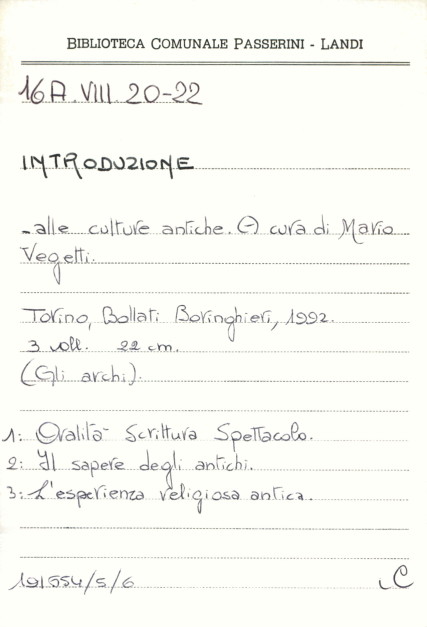 BIBLIOTECA COMUNALE PASSERINI - LANDI
16A.VIII.20-22
INTRODUZIONE
-alle culture antiche. A cura di Mario
Vegetti.
Torino, Bollati Boringhieri, 1992.
3 voll. 22 cm.
(Gli archi).
1: Oralità Scrittura Spettacolo.
2: Il sapere degli antichi.
3: L'esperienza religiosa antica.
191554/5/6
C